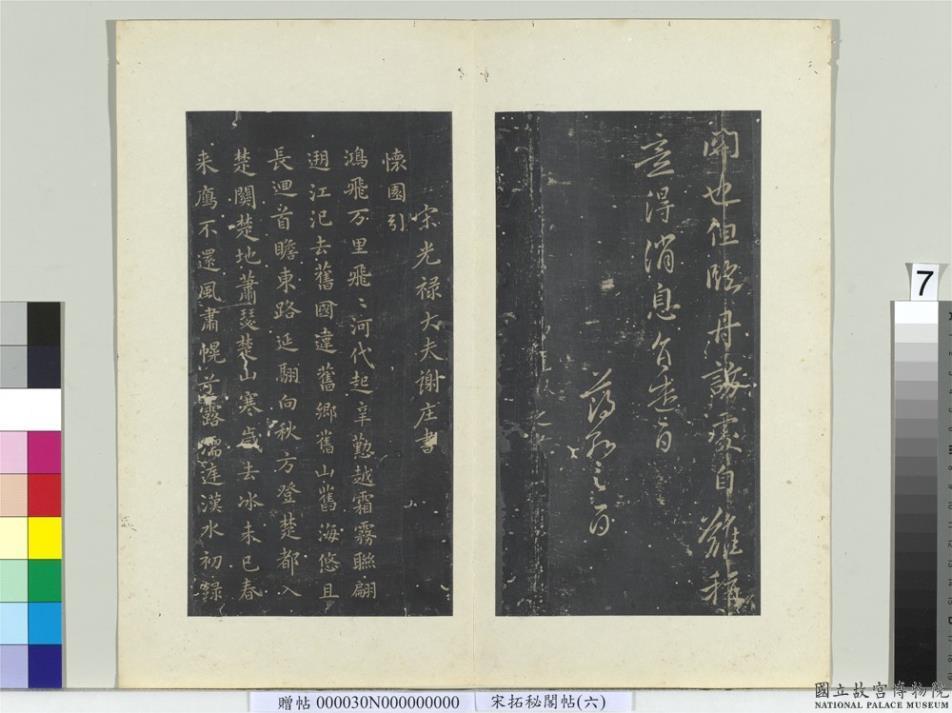 開也但臨丹
自難
意得消息
宋光祿大夫谢庄書
懷園引
鴻飛万里飛〻河代起辛懃越霜霧聯翩
遡江汜去舊國違舊鄉舊山舊海悠且
長迴首瞻東路延翮向秋方登楚都入
楚關楚地蕭瑟楚山寒歲去冰未已春
来鴈不還風肅幌兮露濡庭漢水初綠
7
贈帖 000030N000000000 宋拓秘閣帖(六)
國立故宮博物院
NATIONAL PALACE MUSEUM